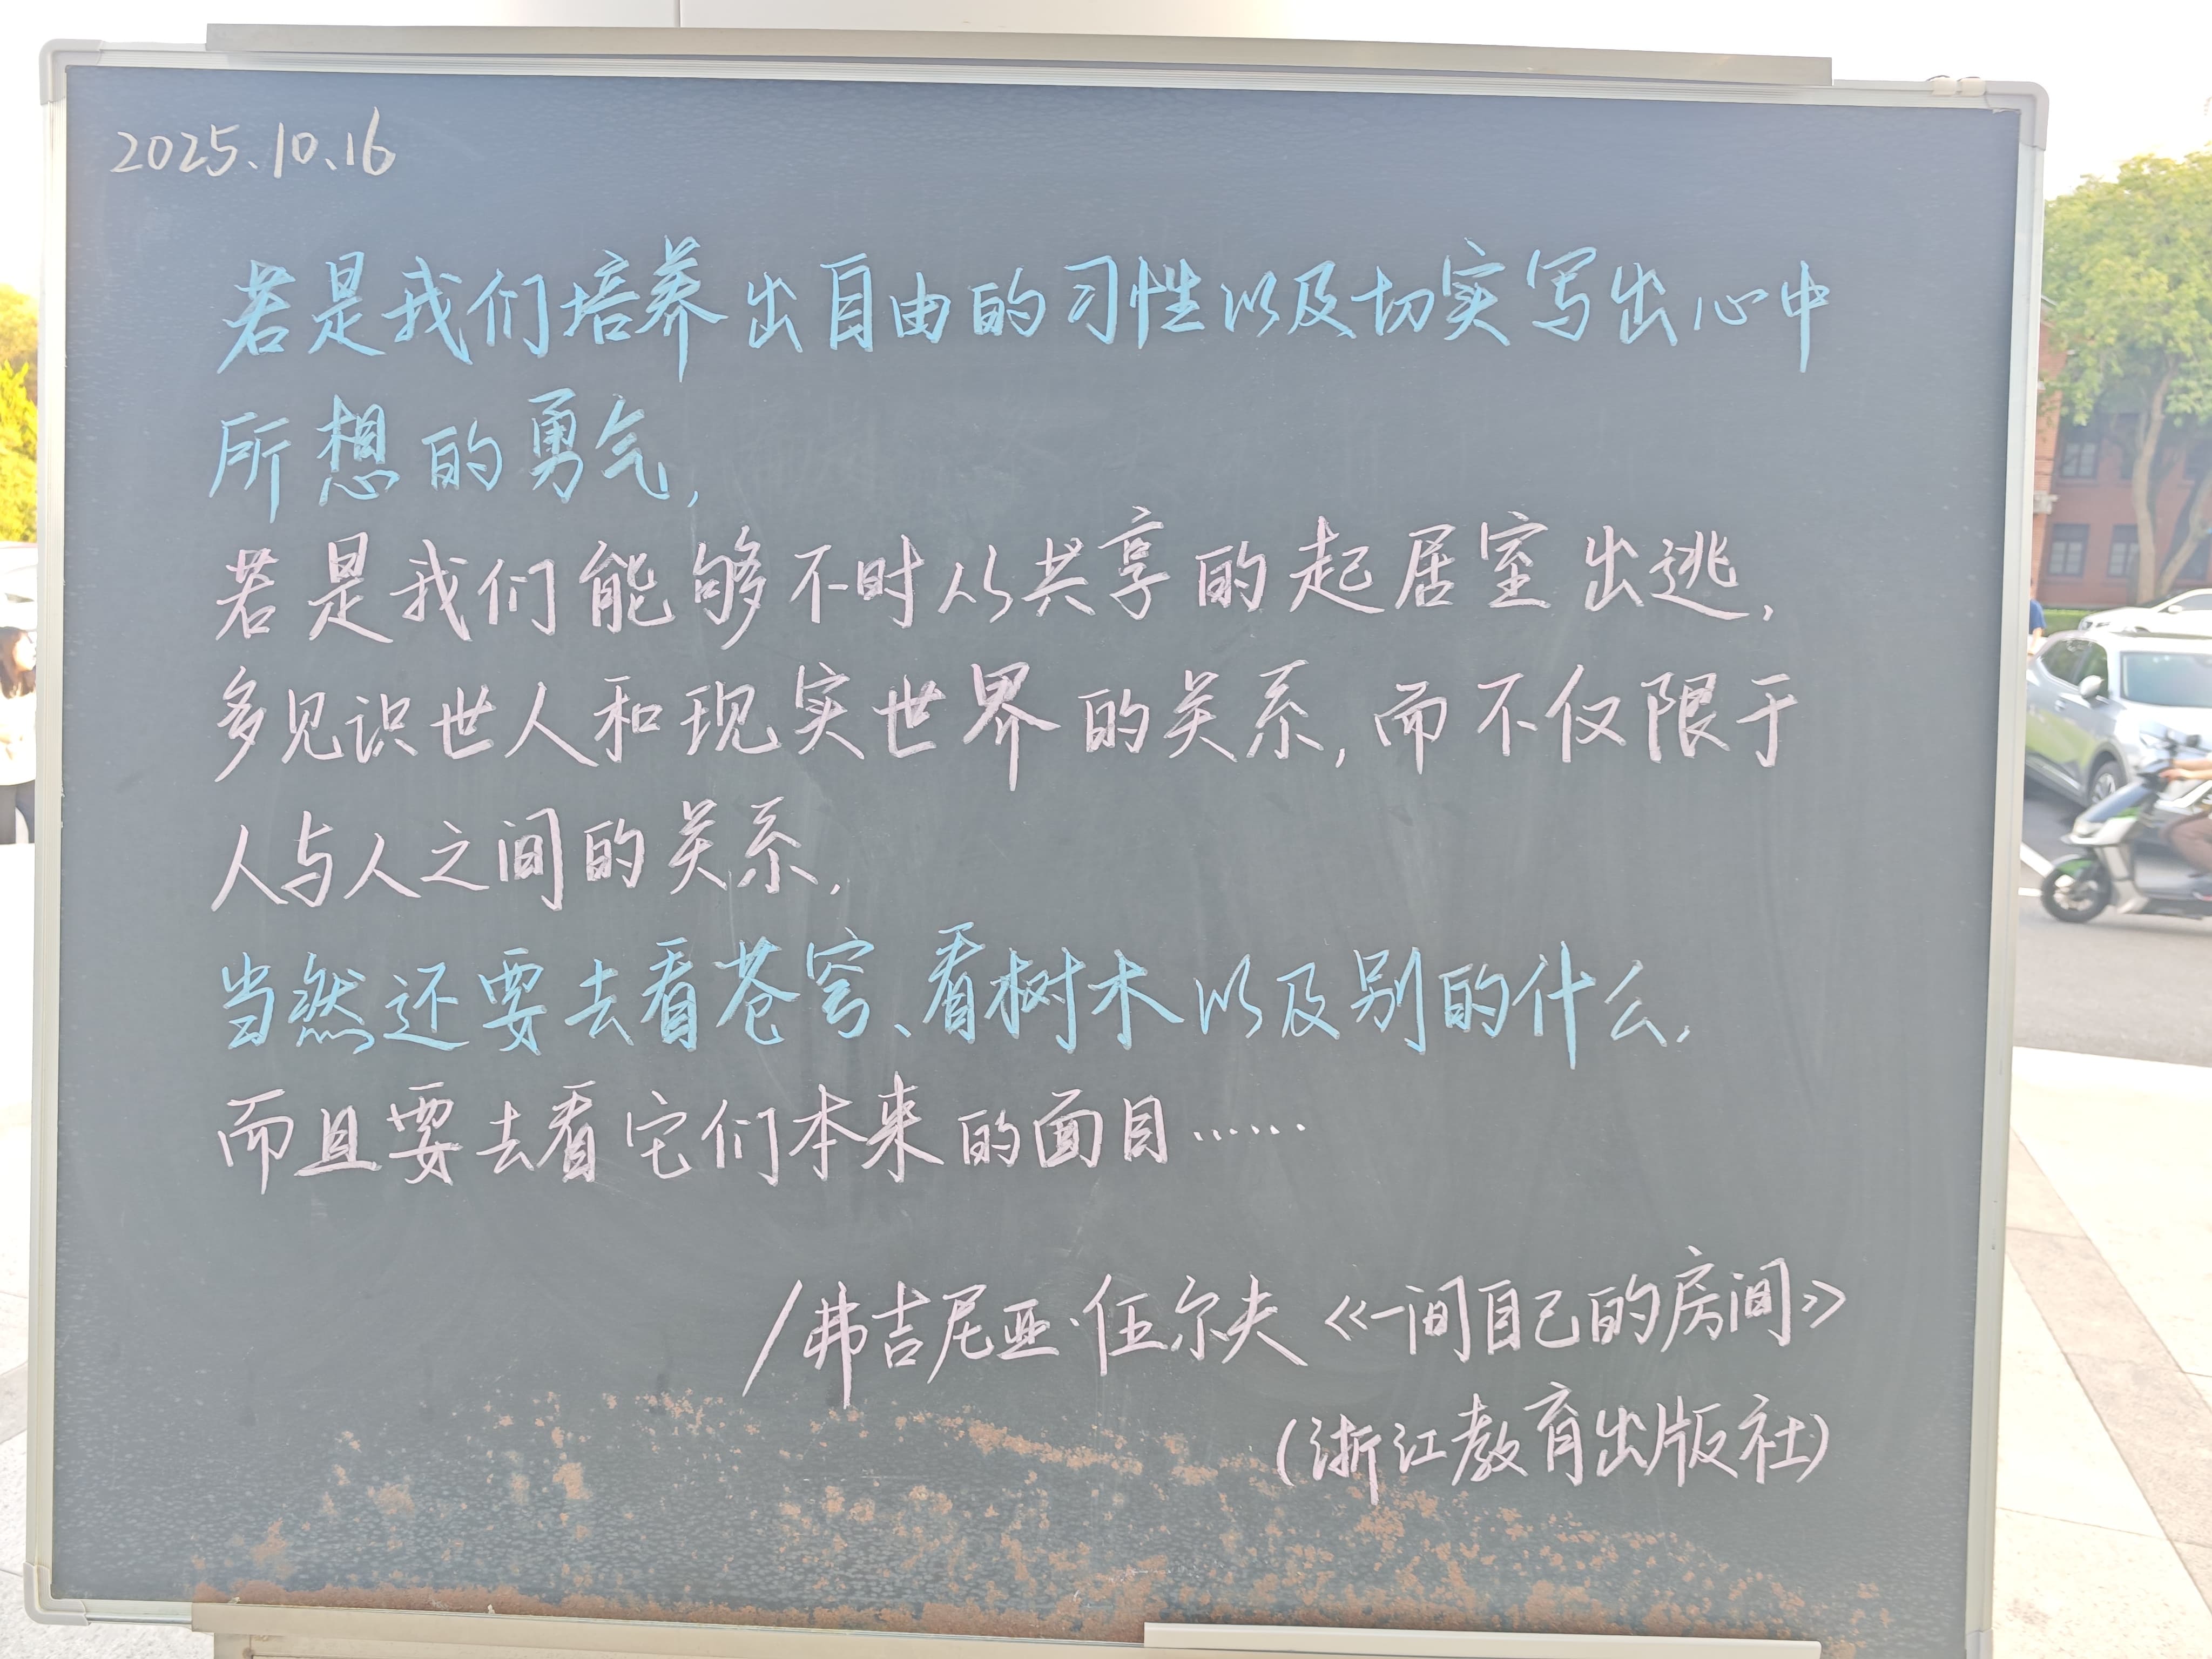 2025.10.16
若是我们培养出自由的习性以及切实写出心中
所想的勇气,
若是我们能够不时从共享的起居室出逃,
多见识世人和现实世界的关系,而不仅限于
人与人之间的关系,
当然还要去看苍穹、看树木以及别的什么,
而且要去看它们本来的面目……
/弗吉尼亚·伍尔夫《一间自己的房间》
(浙江教育出版社)